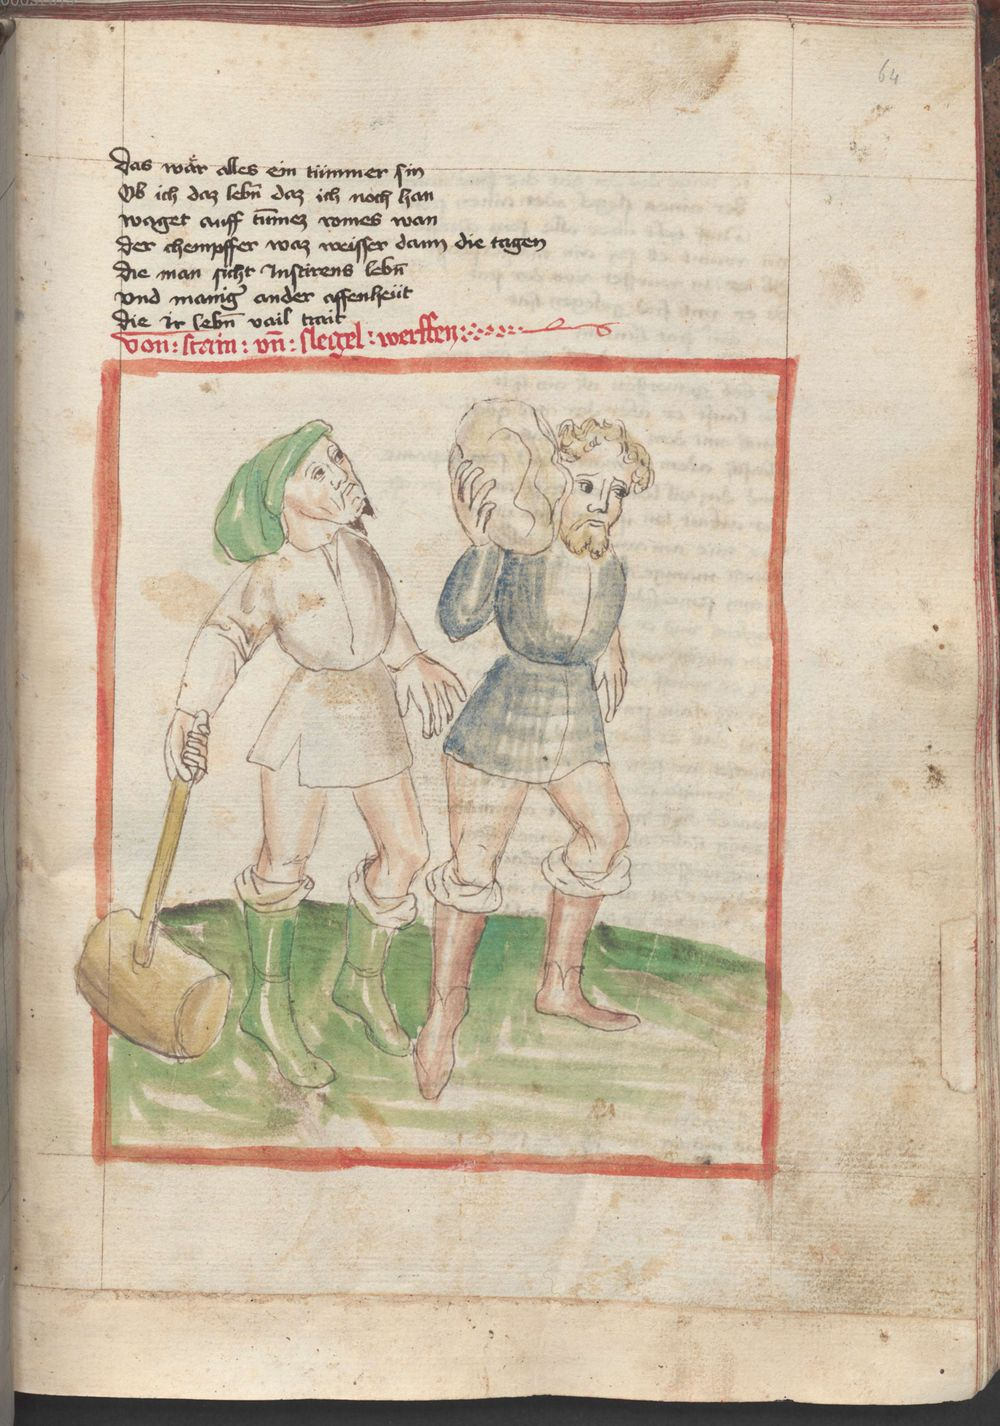 64
Das wär alles ein tümmer sin
Ob ich daz lebn̄ daz ich noch han
waget auff tūmez romes wan
Der chempffer waz weisser dann die tagen
Die man sicht Instirens lebn̄
Vnd manig ander affenheüt
Die Ir lebn̄ vail trait
Von : stain : vn̄ : slegel : werffen